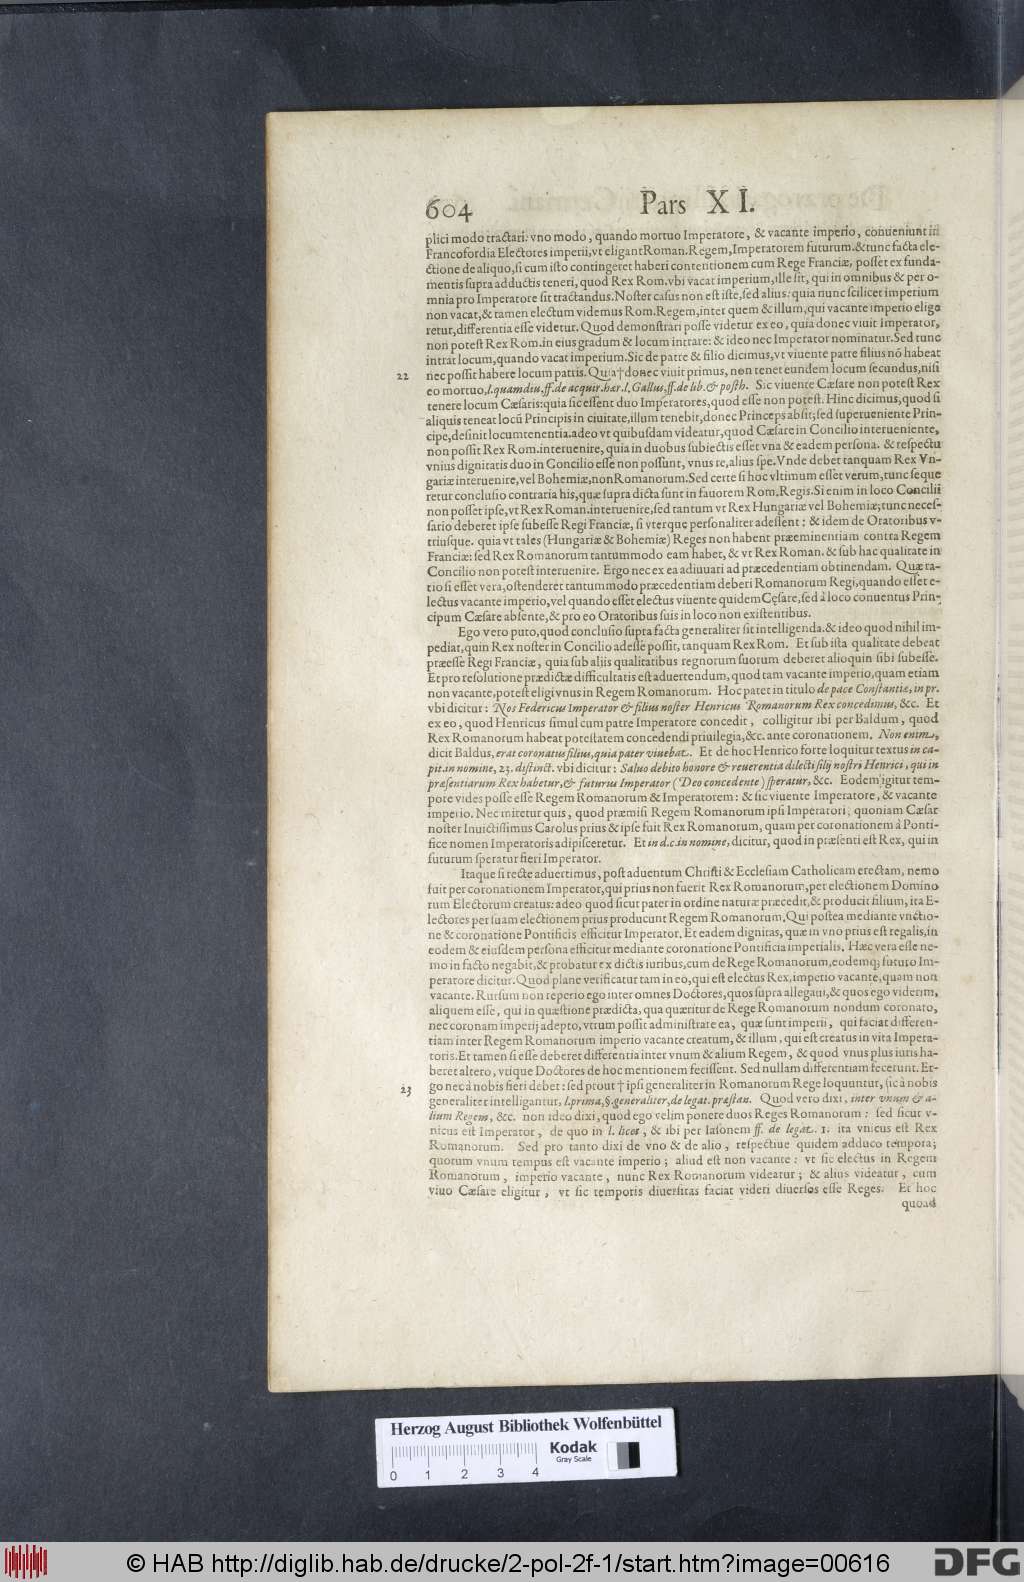 604 Pars XI.
plici modo tractari: vno modo, quando mortuo Imperatore, & vacante imperio, conueniunt in
Francofordia Electores imperii, vt eligant Roman. Regem, Imperatorem futurum. & tunc facta ele-
ctione de aliquo, si cum isto contingeret haberi contentionem cum Rege Franciæ, posset ex funda-
mentis supra adductis teneri, quod Rex Rom. vbi vacat imperium, ille sit, qui in omnibus & per o-
mnia pro Imperatore sit tractandus. Noster casus non est iste, sed alius: quia nunc scilicet imperium
non vacat, & tamen electum videmus Rom. Regem, inter quem & illum, qui vacante imperio elige
retur, differentia esse videtur. Quod demonstrari posse videtur ex eo, quia donec viuit Imperator,
non potest Rex Rom. in eius gradum & locum intrare: & ideo nec Imperator nominatur. Sed tunc
intrat locum, quando vacat imperium. Sic de patre & filio dicimus, vt viuente patre filius nō habeat
22 nec possit habere locum patris. Quia † donec viuit primus, non tenet eundem locum secundus, nisi
eo mortuo, l. quamdiu, ff. de acquir. hær. l. Gallus, ff. de lib. & posth. Sic viuente Cæsare non potest Rex
tenere locum Cæsaris: quia sic essent duo Imperatores, quod esse non potest. Hinc dicimus, quod si
aliquis teneat locū Principis in ciuitate, illum tenebit, donec Princeps absit; sed superueniente Prin-
cipe, desinit locumtenentia. adeo vt quibusdam videatur, quod Cæsare in Concilio interueniente,
non possit Rex Rom. interuenire, quia in duobus subiectis esset vna & eadem persona. & respectu
vnius dignitatis duo in Concilio esse non possunt, vnus re, alius spe. Vnde debet tanquam Rex Vn-
gariæ interuenire, vel Bohemiæ, non Romanorum. Sed certe si hoc vltimum esset verum, tunc seque
retur conclusio contraria his, quæ supra dicta sunt in fauorem Rom. Regis. Si enim in loco Concilii
non posset ipse, vt Rex Roman. interuenire, sed tantum vt Rex Hungariæ vel Bohemiæ; tunc neces-
sario deberet ipse subesse Regi Franciæ, si vterque personaliter adessent: & idem de Oratoribus v-
triusque. quia vt tales (Hungariæ & Bohemiæ) Reges non habent præeminentiam contra Regem
Franciæ: sed Rex Romanorum tantummodo eam habet, & vt Rex Roman. & sub hac qualitate in
Concilio non potest interuenire. Ergo nec ex ea adiuuari ad præcedentiam obtinendam. Quæ ra-
tio si esset vera, ostenderet tantummodo præcedentiam deberi Romanorum Regi, quando esset e-
lectus vacante imperio, vel quando esset electus viuente quidem Cęsare, sed à loco conuentus Prin-
cipum Cæsare absente, & pro eo Oratoribus suis in loco non existentibus.
Ego vero puto, quod conclusio supra facta generaliter sit intelligenda. & ideo quod nihil im-
pediat, quin Rex noster in Concilio adesse possit, tanquam Rex Rom. Et sub ista qualitate debeat
præesse Regi Franciæ, quia sub aliis qualitatibus regnorum suorum deberet alioquin sibi subesse.
Et pro resolutione prædictæ difficultatis est aduertendum, quod tam vacante imperio, quam etiam
non vacante, potest eligi vnus in Regem Romanorum. Hoc patet in titulo de pace Constantiæ, in pr.
vbi dicitur: Nos Federicus Imperator & filius noster Henricus Romanorum Rex concedimus, &c. Et
ex eo, quod Henricus simul cum patre Imperatore concedit, colligitur ibi per Baldum, quod
Rex Romanorum habeat potestatem concedendi priuilegia, &c. ante coronationem. Non enim,
dicit Baldus, erat coronatus filius, quia pater viuebat. Et de hoc Henrico forte loquitur textus in ca-
pit. in nomine, 23. distinct. vbi dicitur: Saluo debito honore & reuerentia dilecti filij nostri Henrici, qui in
præsentiarum Rex habetur, & futurus Imperator (Deo concedente) speratur, &c. Eodem igitur tem-
pore vides posse esse Regem Romanorum & Imperatorem: & sic viuente Imperatore, & vacante
imperio. Nec miretur quis, quod præmisi Regem Romanorum ipsi Imperatori; quoniam Cæsar
noster Inuictissimus Carolus prius & ipse fuit Rex Romanorum, quam per coronationem à Ponti-
fice nomen Imperatoris adipisceretur. Et in d. c. in nomine, dicitur, quod in præsenti est Rex, qui in
futurum speratur fieri Imperator.
Itaque si recte aduertimus, post aduentum Christi & Ecclesiam Catholicam erectam, nemo
fuit per coronationem Imperator, qui prius non fuerit Rex Romanorum, per electionem Domino
rum Electorum creatus: adeo quod sicut pater in ordine naturæ præcedit, & producit filium, ita E-
lectores per suam electionem prius producunt Regem Romanorum. Qui postea mediante vnctio-
ne & coronatione Pontificis efficitur Imperator. Et eadem dignitas, quæ in vno prius est regalis, in
eodem & eiusdem persona efficitur mediante coronatione Pontificia imperialis. Hæc vera esse ne-
mo in facto negabit, & probatur ex dictis iuribus, cum de Rege Romanorum, eodemq; futuro Im-
peratore dicitur. Quod plane verificatur tam in eo, qui est electus Rex, imperio vacante, quam non
vacante. Rursum non reperio ego inter omnes Doctores, quos supra allegaui, & quos ego viderim,
aliquem esse, qui in quæstione prædicta, qua quæritur de Rege Romanorum nondum coronato,
nec coronam imperij adepto, vtrum possit administrare ea, quæ sunt imperii, qui faciat differen-
tiam inter Regem Romanorum imperio vacante creatum, & illum, qui est creatus in vita Impera-
toris. Et tamen si esse deberet differentia inter vnum & alium Regem, & quod vnus plus iuris ha-
beret altero, vtique Doctores de hoc mentionem fecissent. Sed nullam differentiam fecerunt. Er-
23 go nec à nobis fieri debet: sed prout † ipsi generaliter in Romanorum Rege loquuntur, sic à nobis
generaliter intelligantur, l. prima, §. generaliter, de legat. præstan. Quod vero dixi, inter vnum & a-
lium Regem, &c. non ideo dixi, quod ego velim ponere duos Reges Romanorum: sed sicut v-
nicus est Imperator, de quo in l. licet, & ibi per Iasonem ff. de legat. 1. ita vnicus est Rex
Romanorum. Sed pro tanto dixi de vno & de alio, respectiue quidem adduco tempora;
quorum vnum tempus est vacante imperio; aliud est non vacante: vt sic electus in Regem
Romanorum, imperio vacante, nunc Rex Romanorum videatur; & alius videatur, cum
viuo Cæsare eligitur, vt sic temporis diuersitas faciat videri diuersos esse Reges. Et hoc
quoad
Herzog August Bibliothek Wolfenbüttel
0 1 2 3 4
Kodak
Gray Scale
© HAB http://diglib.hab.de/drucke/2-pol-2f-1/start.htm?image=00616
DFG